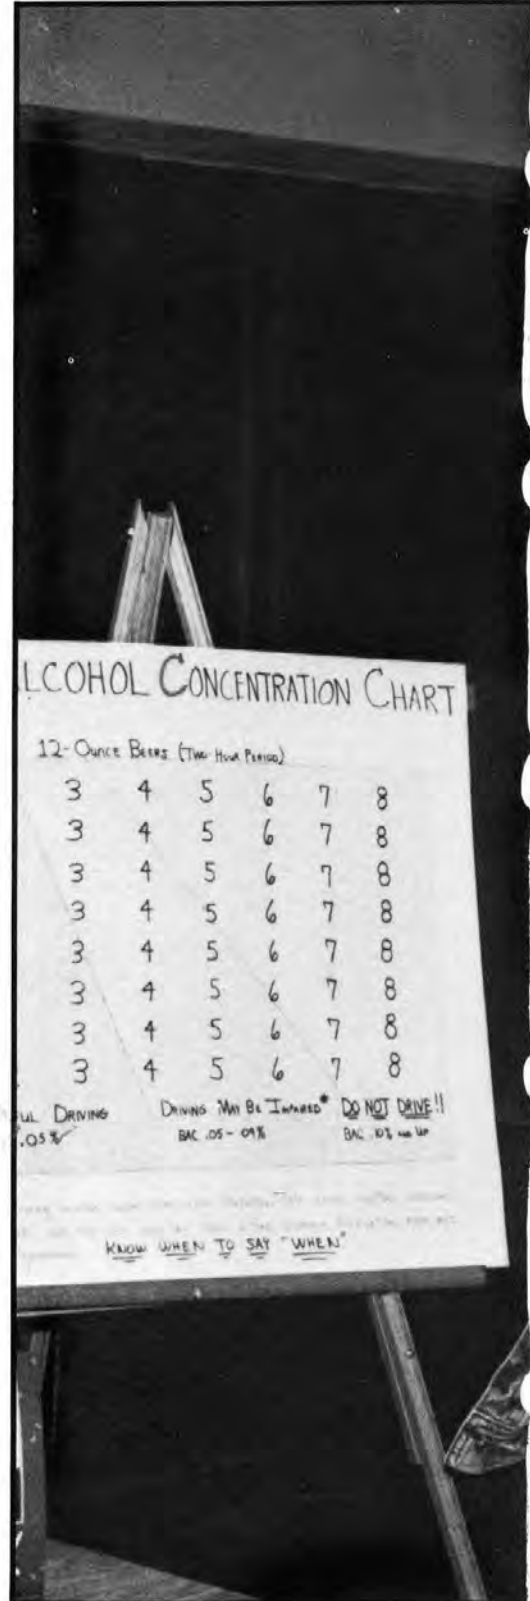 LCOHOL CONCENTRATION CHART
12-OUNCE BEERS (TWO HOUR PERIOD)
3 4 5 6 7 8
3 4 5 6 7 8
3 4 5 6 7 8
3 4 5 6 7 8
3 4 5 6 7 8
3 4 5 6 7 8
3 4 5 6 7 8
3 4 5 6 7 8
UL DRIVING DRIVING MAY BE IMPAIRED* DO NOT DRIVE!!
.05% BAC .05-.09% BAC .10% AND UP
KNOW WHEN TO SAY "WHEN"